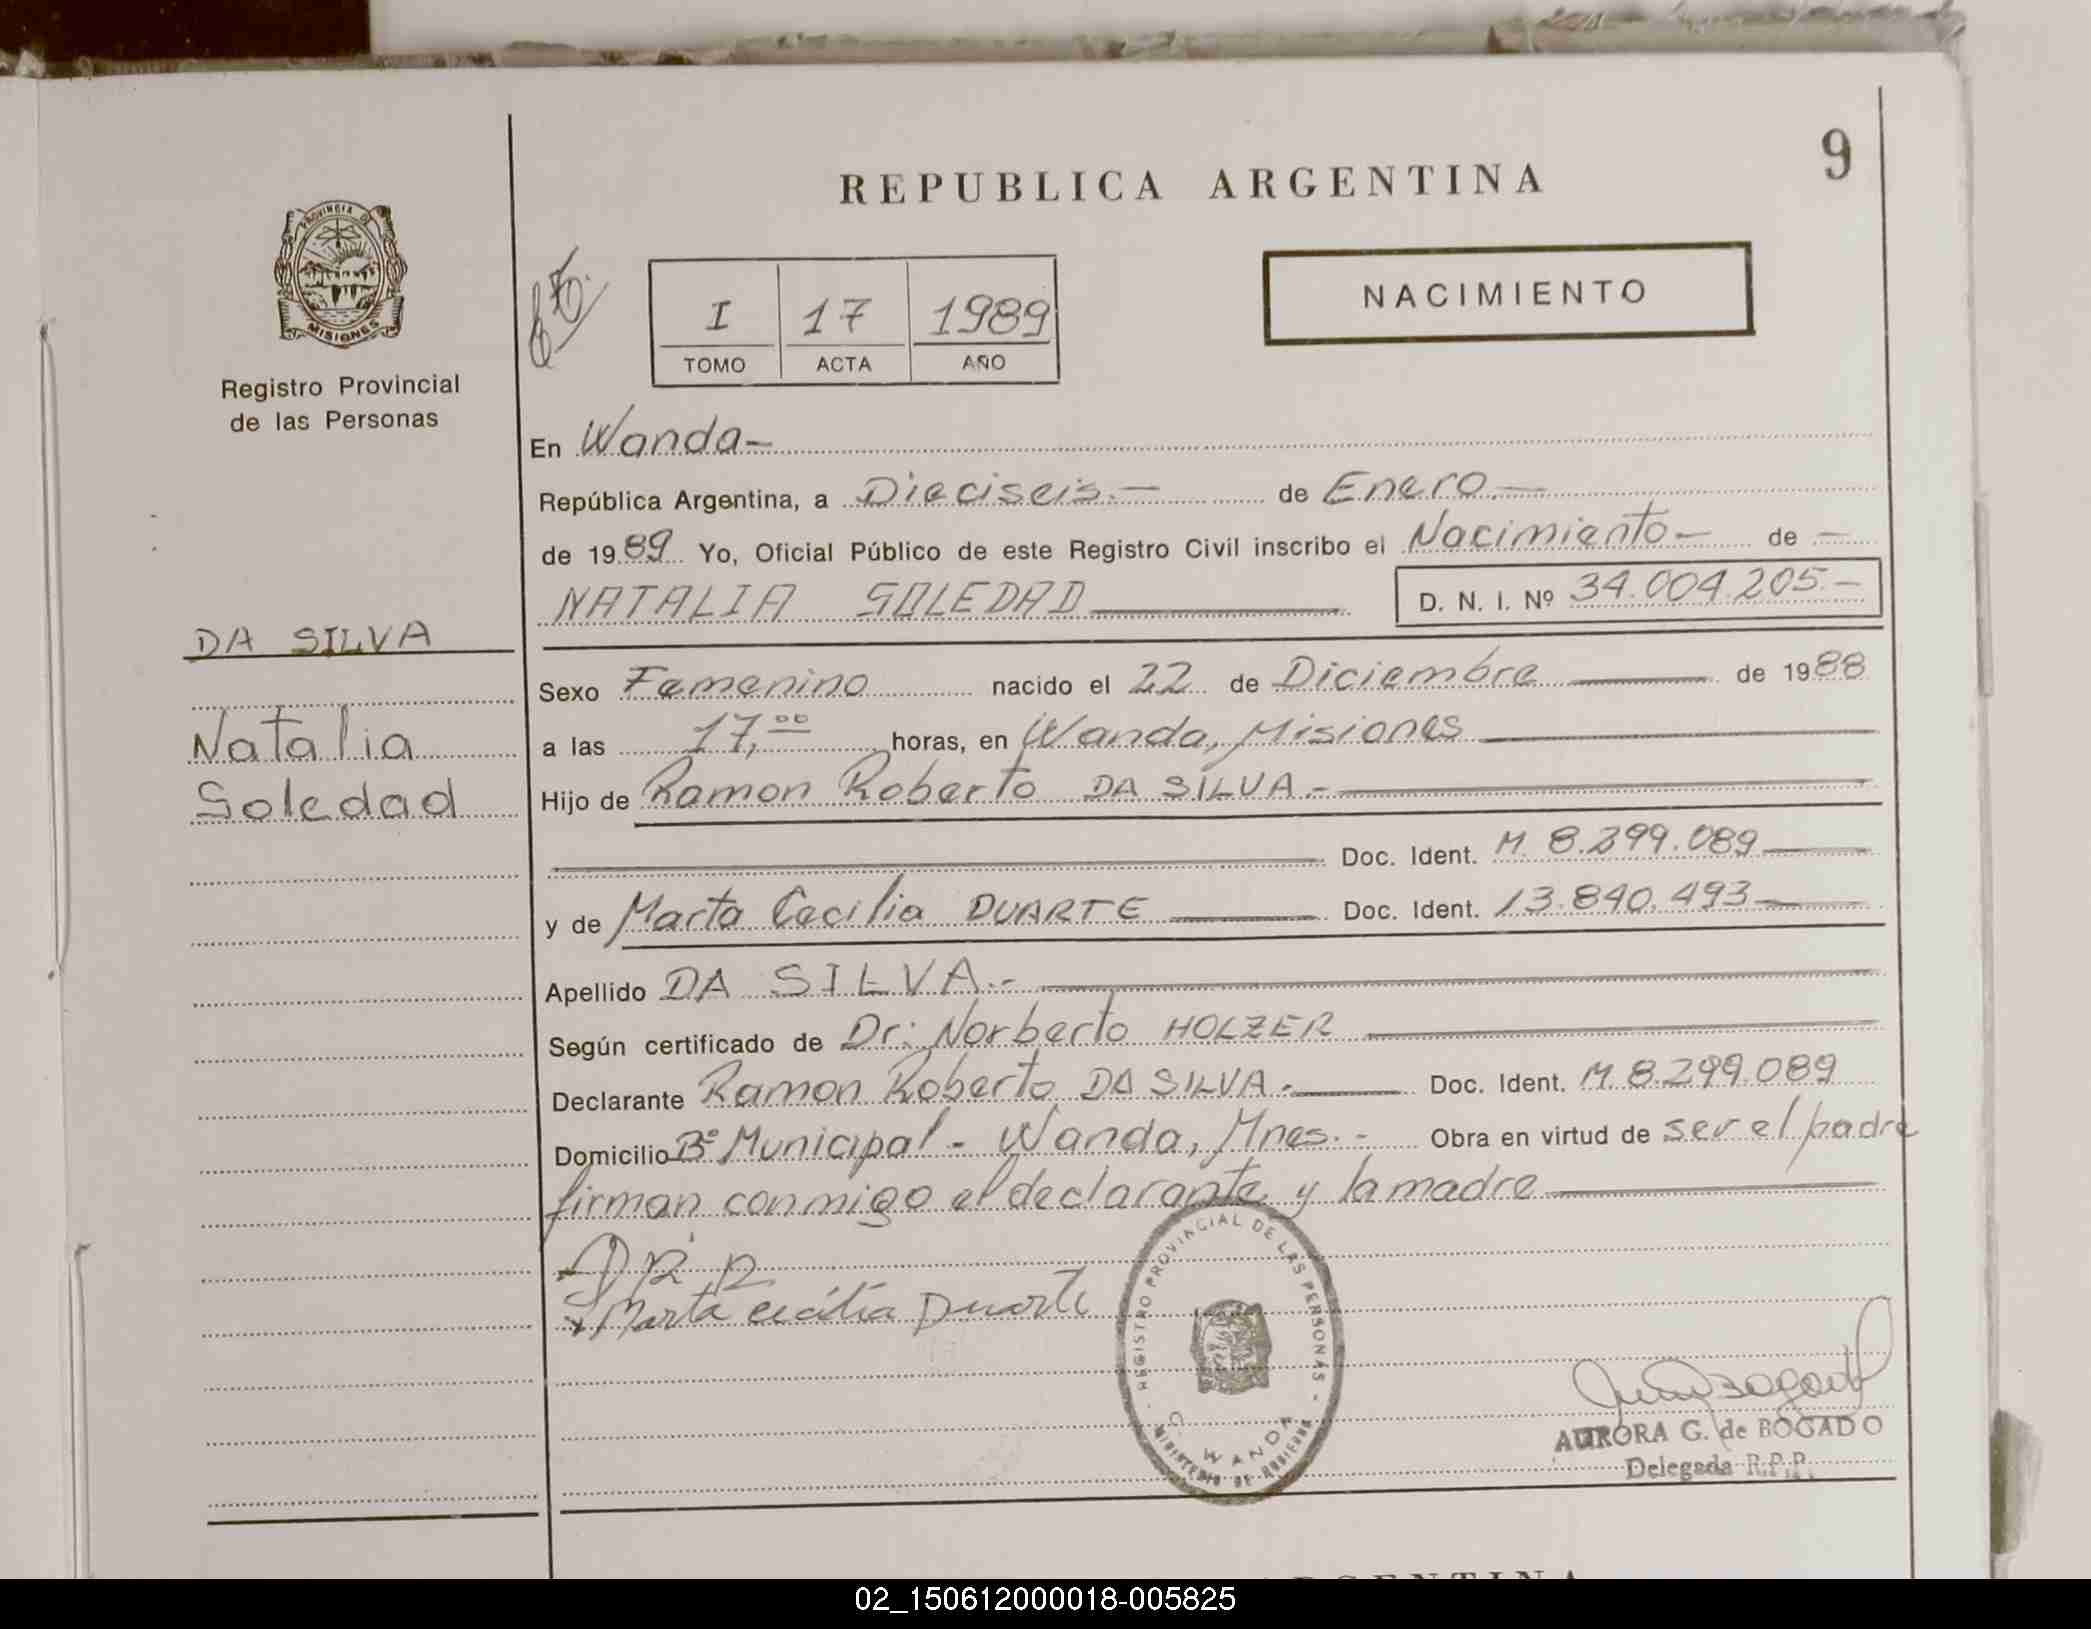 9
REPUBLICA ARGENTINA
PROVINCIA DE
MISIONES
Registro Provincial
de las Personas
I 17 1989
TOMO ACTA AÑO
NACIMIENTO
En Wanda-
República Argentina, a Dieciseis.- de Enero.-
de 1989 Yo, Oficial Público de este Registro Civil inscribo el Nacimiento- de -
NATALIA SOLEDAD D. N. I. Nº 34.004.205.-
DA SILVA
Natalia
Soledad
Sexo Femenino nacido el 22 de Diciembre de 1988
a las 17,00 horas, en Wanda, Misiones
Hijo de Ramon Roberto DA SILVA.-
Doc. Ident. M. 8.299.089
y de Marta Cecilia DUARTE Doc. Ident. 13.840.493
Apellido DA SILVA.-
Según certificado de Dr: Norberto HOLZER
Declarante Ramon Roberto DA SILVA.- Doc. Ident. M. 8.299.089
Domicilio Bº Municipal - Wanda, Mnes.- Obra en virtud de ser el padre
firman conmigo el declarante y la madre
Marta cecilia Duarte
REGISTRO PROVINCIAL DE LAS PERSONAS
WANDA
MINISTERIO DE GOBIERNO
AURORA G. de BOGADO
Delegada R.P.P.
ARGENTINA
02_150612000018-005825